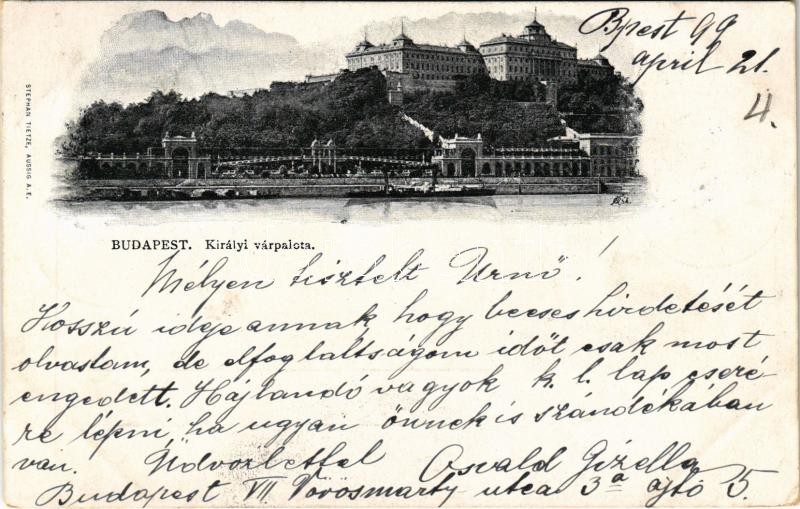 Bpest 99
april 21.
4.
STEPHAN TIETZE, AUSSIG A. E.
BUDAPEST. Királyi várpalota.
Mélyen tisztelt Urnő!
Hosszú ideje annak hogy becses hirdetését
olvastam, de elfoglaltságom időt csak most
engedett. Hájlandó vagyok k. l. lap cseré
re lépni, ha ugyan önnek is szándékában
van. Üdvözlettel Osvald Gizella
Budapest VII Vörösmarty utca 3a ajtó 5.